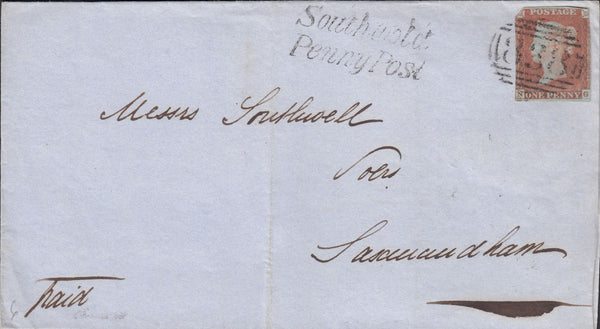 Southwold
Penny Post
POSTAGE
ONE PENNY
Messrs Southwell
Saxmundham
Paid